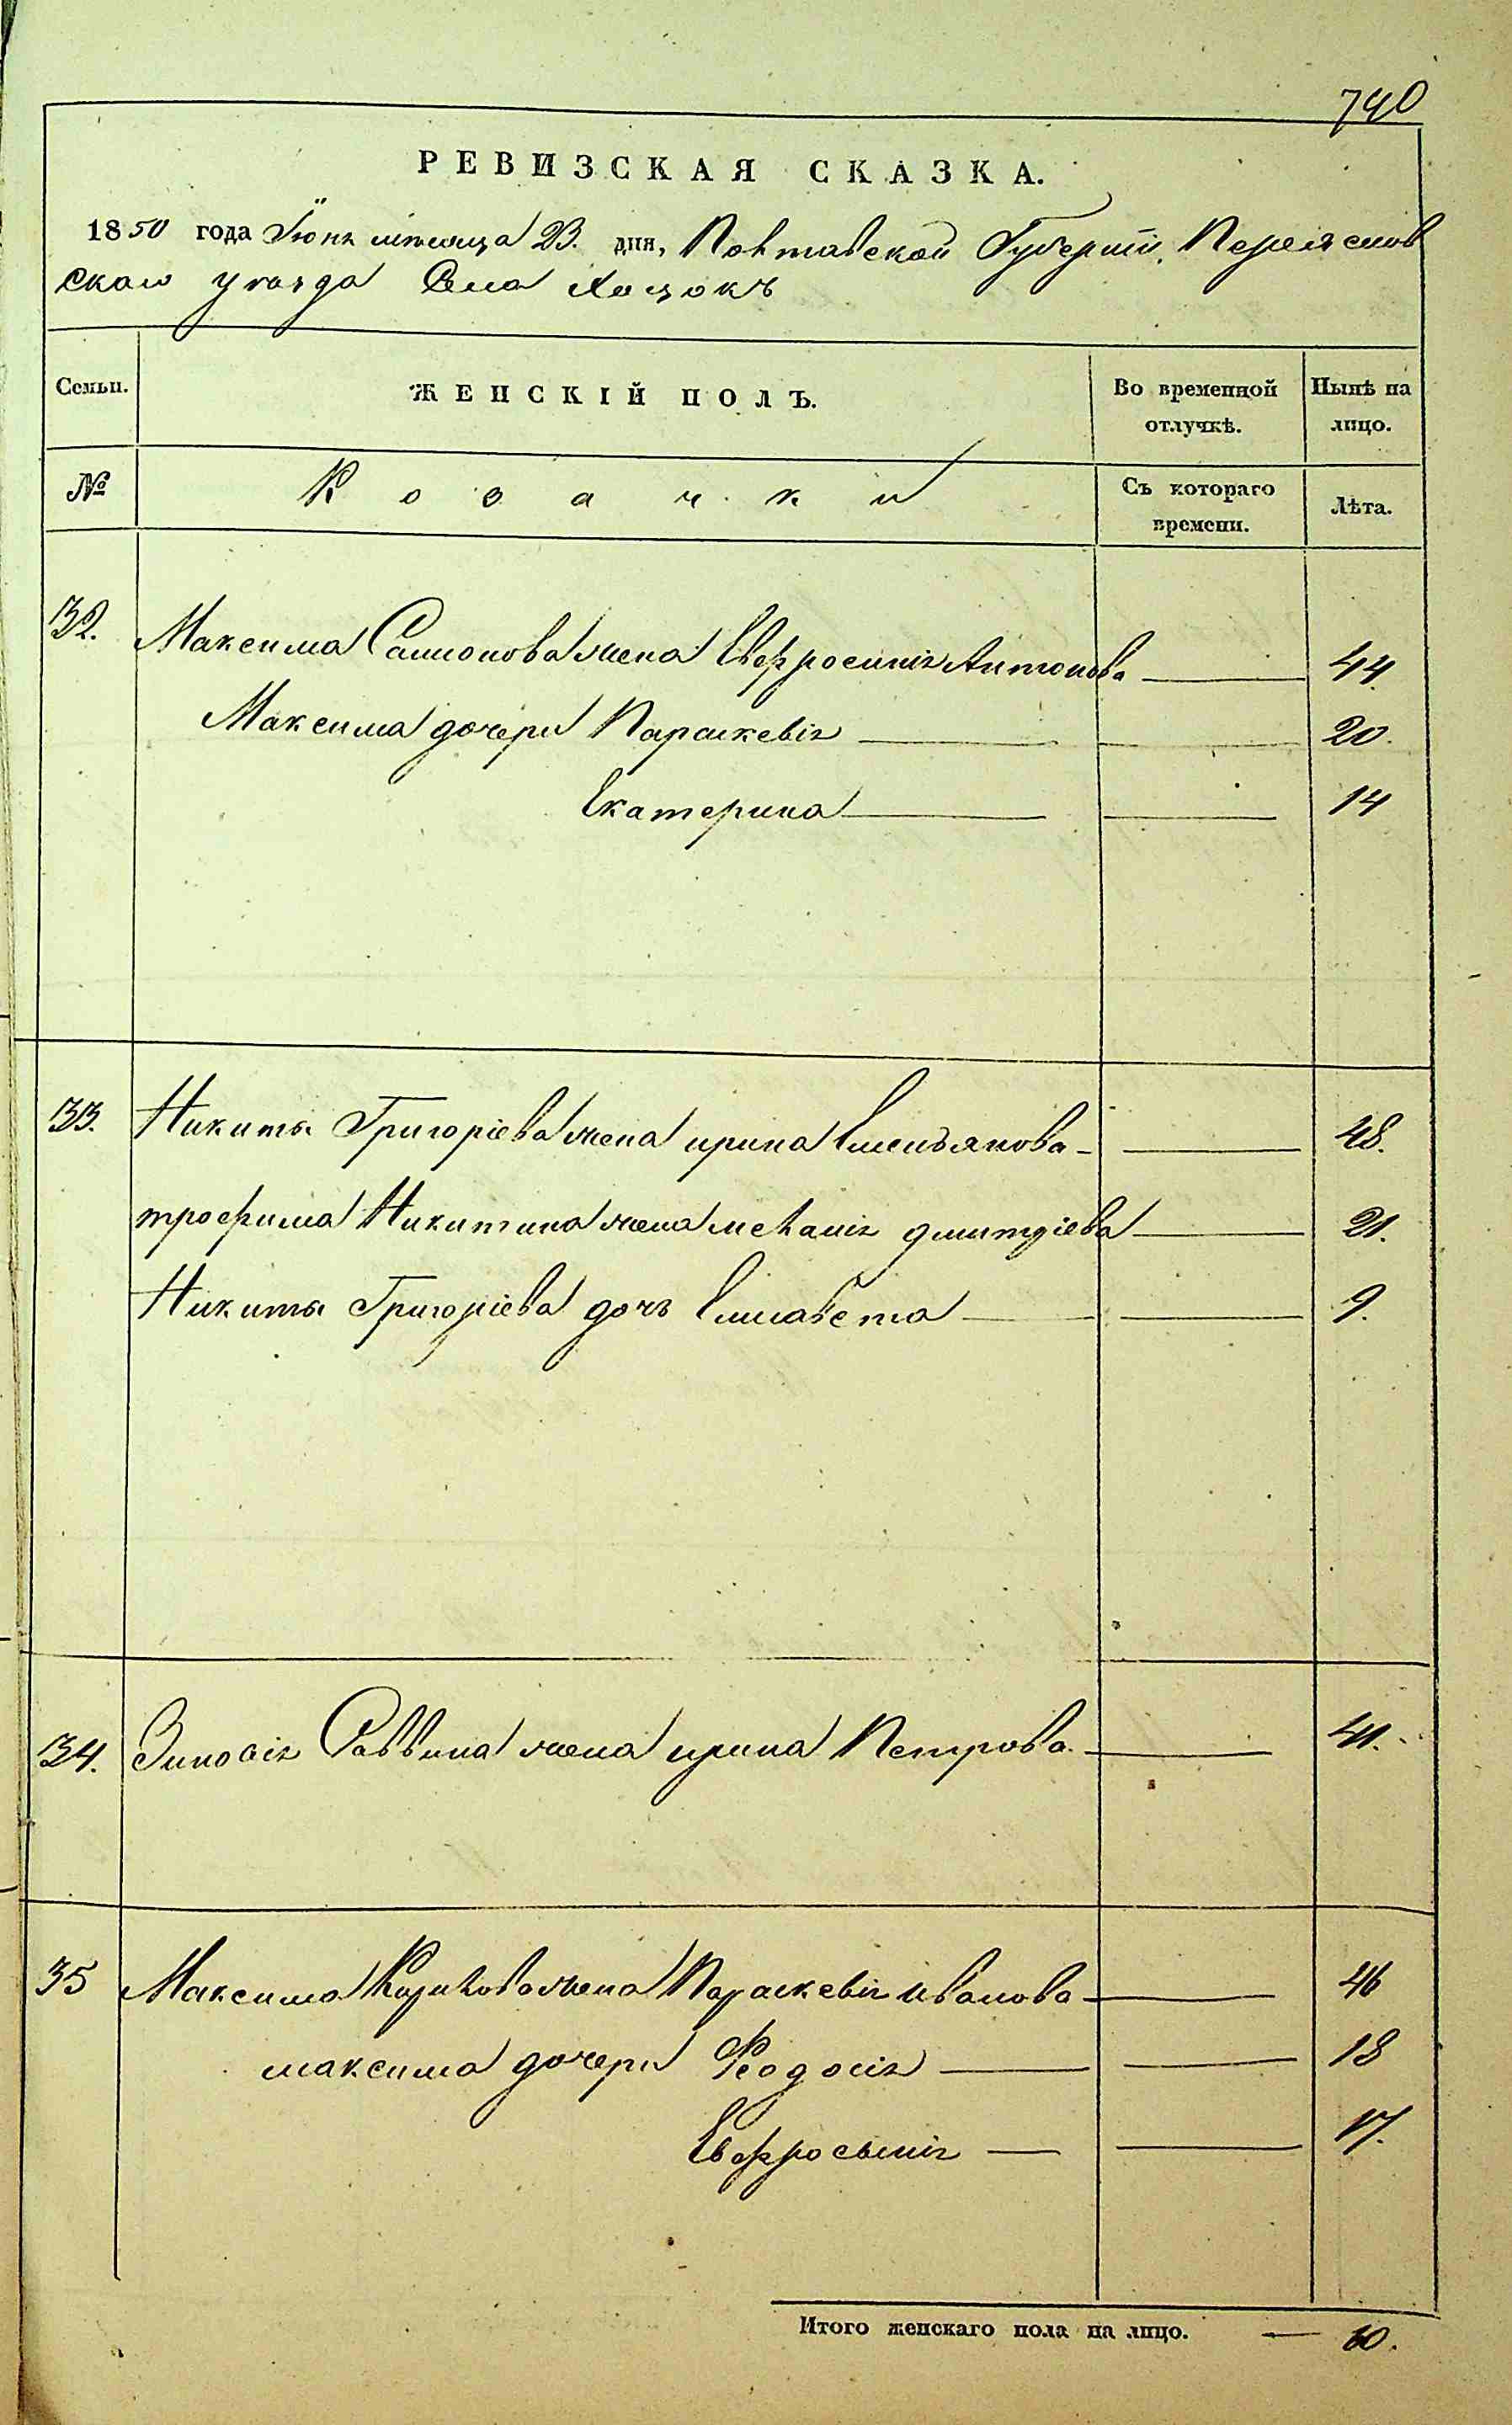 740
РЕВИЗСКАЯ СКАЗКА.
1850 года Іюня мѣсяца 23. дня, Полтавской Губерніи, Переяслов
скаго уѣзда Села Хоцокъ
Семьи. ЖЕНСКІЙ ПОЛЪ. Во временной отлучкѣ. Нынѣ на лицо.
№ Козачки Съ котораго времени. Лѣта.
32. Максима Самсонова жена Евфросинія Антонова 44
Максима дочери Параскевія 20.
Екатерина 14
33. Никиты Григоріева жена ирина Емельянова 48.
трофима Никитина жена меланія дмитріева 21.
Никиты Григоріева дочь Елисавета 9.
34. Зиновія Саввина жена ирина Петрова 41.
35 Максима жена Параскевія иванова 46
максима дочери Феодосія 18
Евфросинія 17.
Итого женскаго пола на лицо. — 10.